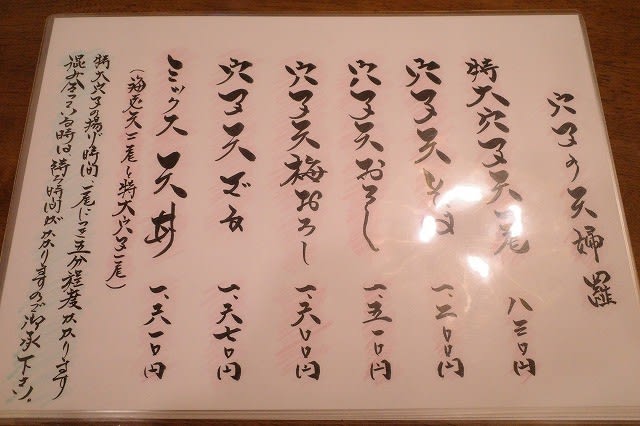 穴子の天婦羅
特大穴子天一尾 八三〇円
穴子天そば 一、二〇〇円
穴子天おろし 一、五一〇円
穴子天梅おろし 一、六〇〇円
穴子天でか 一、六七〇円
ミックス天丼 一、六一〇円
(海老天二尾と特大穴子一尾)
特大穴子の揚げ時間、一尾に三五分程度かかります
混み合っている時は待ち時間がかかりますのでご承下さい。